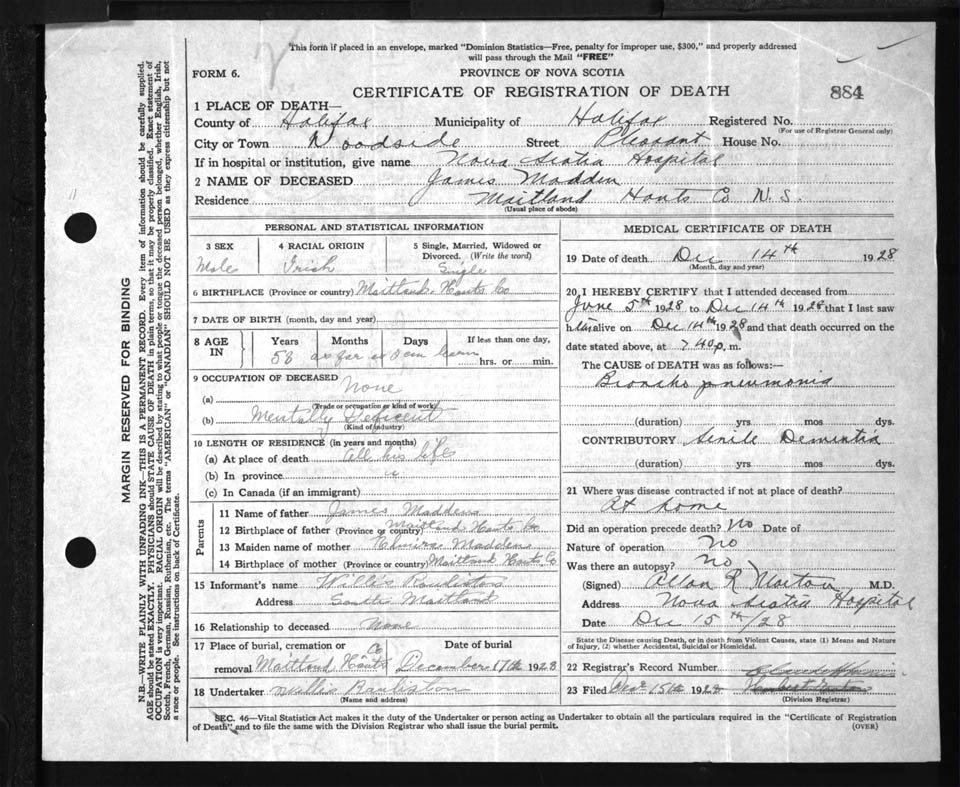 This form if placed in an envelope, marked "Dominion Statistics—Free, penalty for improper use, $300," and properly addressed
will pass through the Mail "FREE"
FORM 6.
PROVINCE OF NOVA SCOTIA
CERTIFICATE OF REGISTRATION OF DEATH
884
1 PLACE OF DEATH—
County of Halifax Municipality of Halifax Registered No.
(For use of Registrar General only)
City or Town Woodside Street Pleasant House No.
If in hospital or institution, give name Nova Scotia Hospital
2 NAME OF DECEASED James Madden
Residence Maitland Hants Co N.S.
(Usual place of abode)
PERSONAL AND STATISTICAL INFORMATION
3 SEX 4 RACIAL ORIGIN 5 Single, Married, Widowed or
Divorced. (Write the word)
Male Irish Single
6 BIRTHPLACE (Province or country) Maitland Hants Co
7 DATE OF BIRTH (month, day and year)
8 AGE IN Years Months Days If less than one day,
as far as I can learn hrs. or min.
9 OCCUPATION OF DECEASED None
(a)
(Trade or occupation or kind of work)
(b) Mentally Deficient
(Kind of industry)
10 LENGTH OF RESIDENCE (in years and months)
(a) At place of death all his life
(b) In province "
(c) In Canada (if an immigrant)
Parents
11 Name of father James Madden
12 Birthplace of father (Province or country) Maitland Hants Co
13 Maiden name of mother Madden
14 Birthplace of mother (Province or country) Maitland Hants Co
15 Informant's name Willis
Address Maitland
16 Relationship to deceased None
17 Place of burial, cremation or Co Date of burial
removal Maitland Hants December 17th 1928
18 Undertaker Willis
(Name and address)
MEDICAL CERTIFICATE OF DEATH
19 Date of death Dec 14th 1928
(Month, day and year)
20 I HEREBY CERTIFY that I attended deceased from
June 5th 1928 to Dec 14th 1928 that I last saw
him alive on Dec 14th 1928 and that death occurred on the
date stated above, at 7 40 p. m.
The CAUSE OF DEATH was as follows:—
Broncho pneumonia
(duration) yrs mos dys.
CONTRIBUTORY Senile Dementia
(duration) yrs mos dys.
21 Where was disease contracted if not at place of death?
At home
Did an operation precede death? No Date of
Nature of operation No
Was there an autopsy? No
(Signed) Allan R Morton M.D.
Address Nova Scotia Hospital
Date Dec 15th/28
State the Disease causing Death, or in death from Violent Causes, state (1) Means and Nature
of Injury, (2) whether Accidental, Suicidal or Homicidal.
22 Registrar's Record Number
23 Filed Dec 15th 1928
(Division Registrar)
SEC. 46—Vital Statistics Act makes it the duty of the Undertaker or person acting as Undertaker to obtain all the particulars required in the "Certificate of Registration
of Death" and to file the same with the Division Registrar who shall issue the burial permit.
(OVER)
MARGIN RESERVED FOR BINDING
N.B.—WRITE PLAINLY WITH UNFADING INK—THIS IS A PERMANENT RECORD. Every item of information should be carefully supplied.
AGE should be stated EXACTLY. PHYSICIANS should STATE CAUSE OF DEATH in plain terms, so that it may be properly classified. Exact statement of
OCCUPATION is very important. RACIAL ORIGIN will be described by stating to what people or tongue the deceased person belonged, whether English, Irish,
Scotch, French, German, Russian, Ruthenian, etc. The terms "AMERICAN" or "CANADIAN" SHOULD NOT BE USED as they express citizenship but not
a race or people. See instructions on back of Certificate.